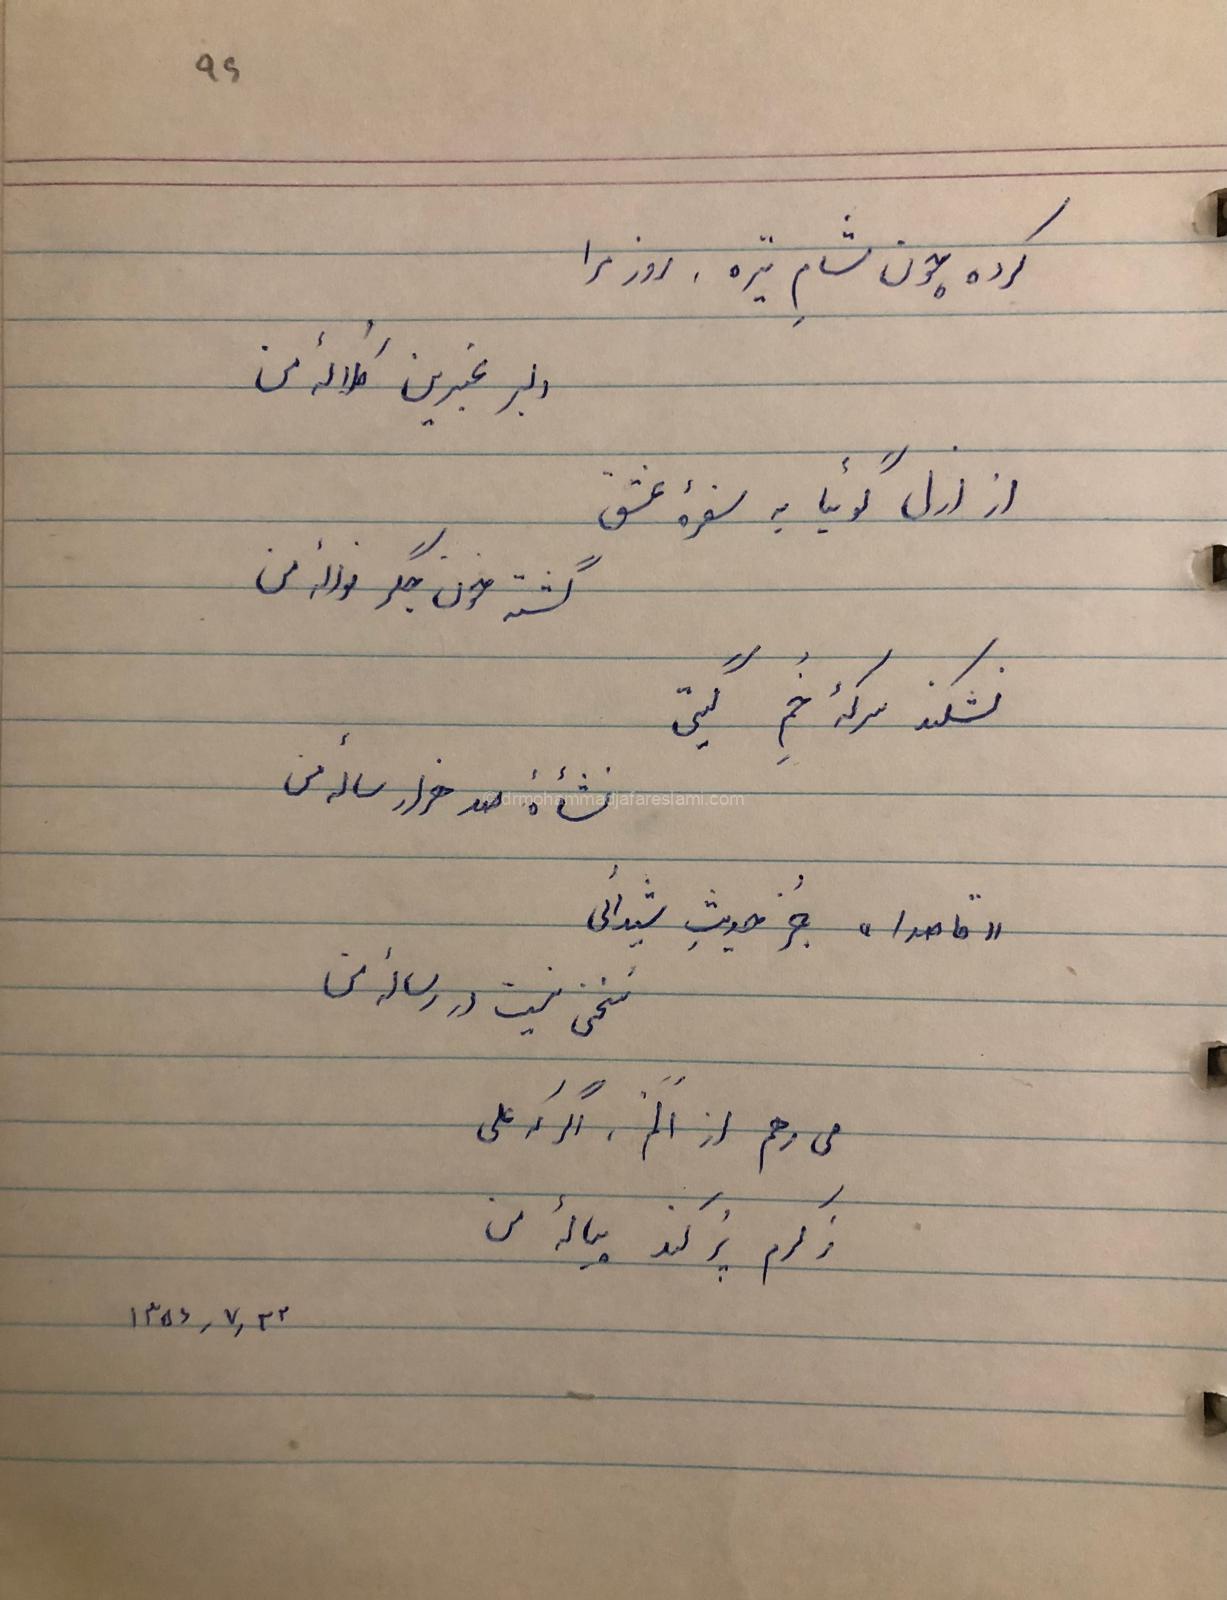 ۹۶
کرده چون شامِ تیره ، روز مرا
دلبر عنبرین کُلالهٔ من
از ازل گوئیا به سفرهٔ عشق
گشته خون جگر نوالهٔ من
نشکند سرکهٔ خُمِ گیتی
نشأهٔ صد هزار سالهٔ من
"قاصدا" جُز حدیثِ شیدائی
سُخنی نیست در رسالهٔ من
© drmohammadjafareslami.com
می رهم از اَلَم ، اگر که علی
ز کرم پُر کند پیالهٔ من
۱۳۵۶٫۷٫۲۲